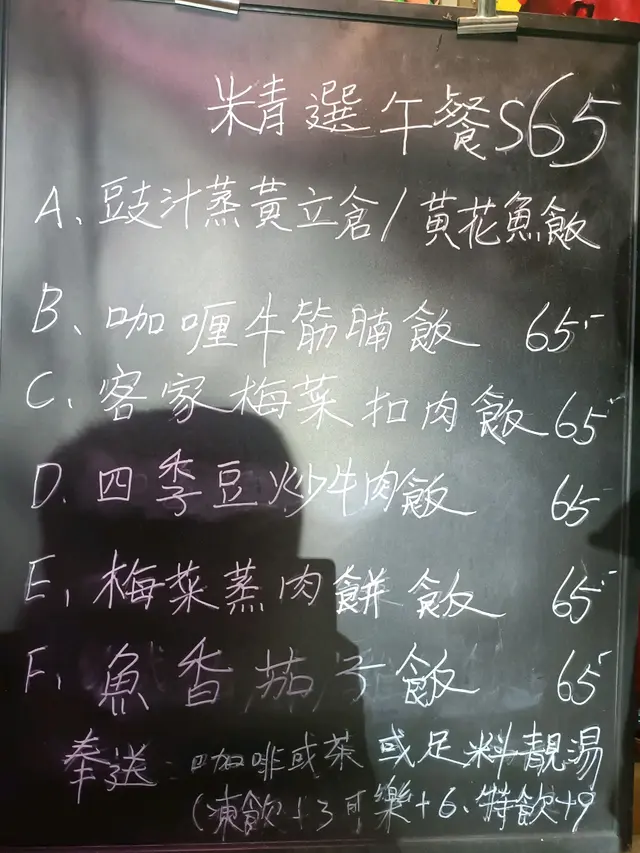 精選午餐$65
A、豉汁蒸黃立倉/黃花魚飯
B、咖喱牛筋腩飯 65.-
C、客家梅菜扣肉飯 65.-
D、四季豆炒牛肉飯 65-
E、梅菜蒸肉餅飯 65.-
F、魚香茄子飯 65-
奉送：咖啡或茶或足料靚湯
(凍飲+3 可樂+6、特飲+9